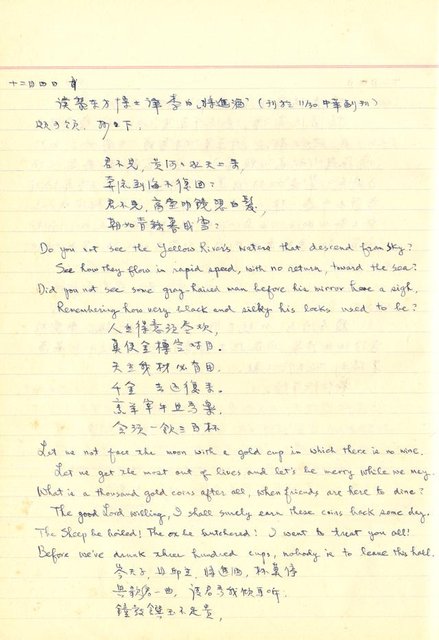 十二月四日
读 东方 博士 譯 李白 "將進酒" (刊於 11/30 中華副刊)
如下.
君不見, 黃河之水天上來,
奔流到海不復回?
君不見, 高堂明鏡悲白髮,
朝如青絲暮成雪?
Do you not see the Yellow River's waters that descend from sky?
See how they flow in rapid speed, with no return, toward the sea?
Did you not see some gray-haired man before his mirror have a sigh,
Remembering how very black and silky his locks used to be?
人生得意須盡歡,
莫使金樽空對月.
天生我材必有用.
千金 去还復来.
烹羊宰牛且為樂.
会須一飲三百杯
Let us not face the moon with a gold cup in which there is no wine.
Let us get the most out of lives and let's be merry while we may.
What is a thousand gold coins after all, when friends are here to dine?
The good Lord willing, I shall surely earn these coins back some day.
The Sheep be boiled! The ox be butchered! I want to treat you all!
Before we've drunk three hundred cups, nobody is to leave this hall.
岑夫子, 丹邱生, 將進酒, 杯莫停
與歌君一曲, 請君為我傾耳听.
鐘鼓饌玉不足貴,